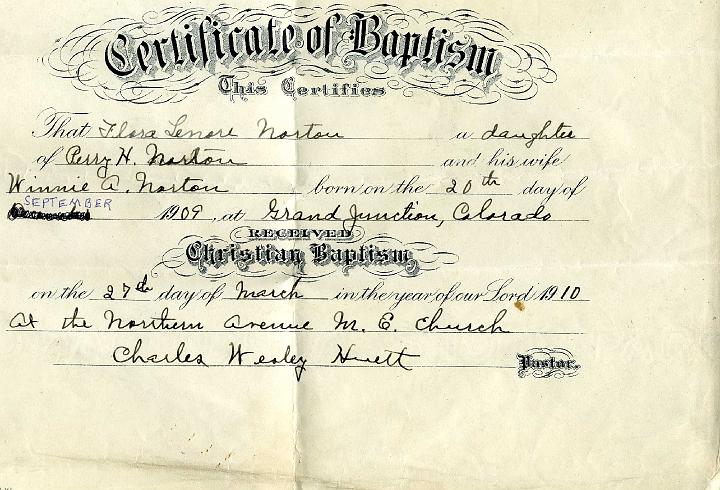 Certificate of Baptism
This Certifies
That Flora Lenore Norton a daughter
of Perry H. Norton and his wife
Winnie A. Norton born on the 20th day of
SEPTEMBER 1909, at Grand Junction, Colorado
RECEIVED
Christian Baptism
on the 27th day of March in the year of our Lord 1910
At the Northern Avenue M. E. Church
Charles Wesley Huett Pastor.